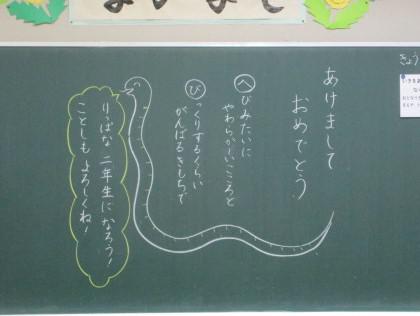 あけまして
おめでとう
へびみたいに
やわらかーいこころと
びっくりするくらい
がんばるきもちで
りっぱな二年生になろう！
ことしもよろしくね！
きょう